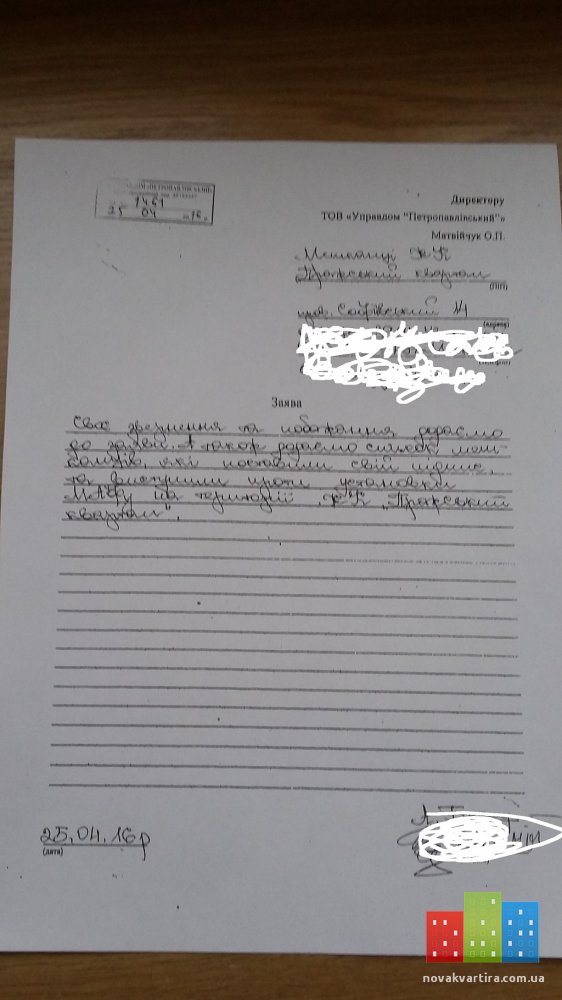 1461
25 04 16р.
Директору
ТОВ «Управдом "Петропавлівський"»
Матвійчук О.П.
Мешканці ЖК
Празький квартал
(ПІП)
Софіївський
(адреса)
Заява
Своє звернення та побажання додаємо
до заяви. А також додаємо список меш-
канців, які поставили свій підпис,
та виступили проти установки
МАФу на території ЖК „Празький
квартал".
25.04.16р
(дата)
novakvartira.com.ua